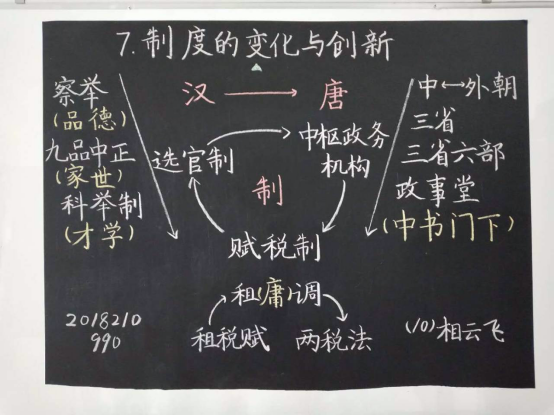 7.制度的变化与创新
察举
(品德)
九品中正
(家世)
科举制
(才学)
汉→唐
选官制
中枢政务
机构
制
赋税制
租(庸)调
租税赋
两税法
中↔外朝
三省
三省六部
政事堂
(中书门下)
2018210
990
(10)相云飞